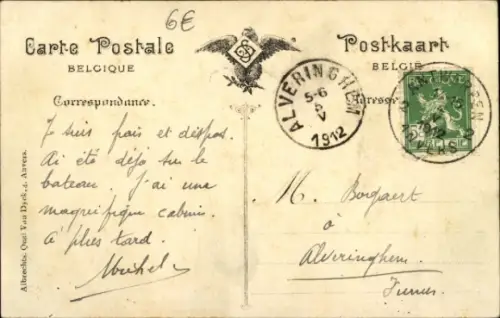 6€
Carte Postale
BELGIQUE
Postkaart
BELGIË
Correspondance.
Adresse
ALVERINGHEM
5-6
V
1912
ANTWERPEN
1912
ANVERS
Je suis frais et dispos.
Ai été déjà sur le
bateau. J'ai une
magnifique cabine.
A plus tard.
Michel
M. Bogaert
à
Alveringhem.
Furnes
Albrechts, Quai Van Dyck, Anvers.